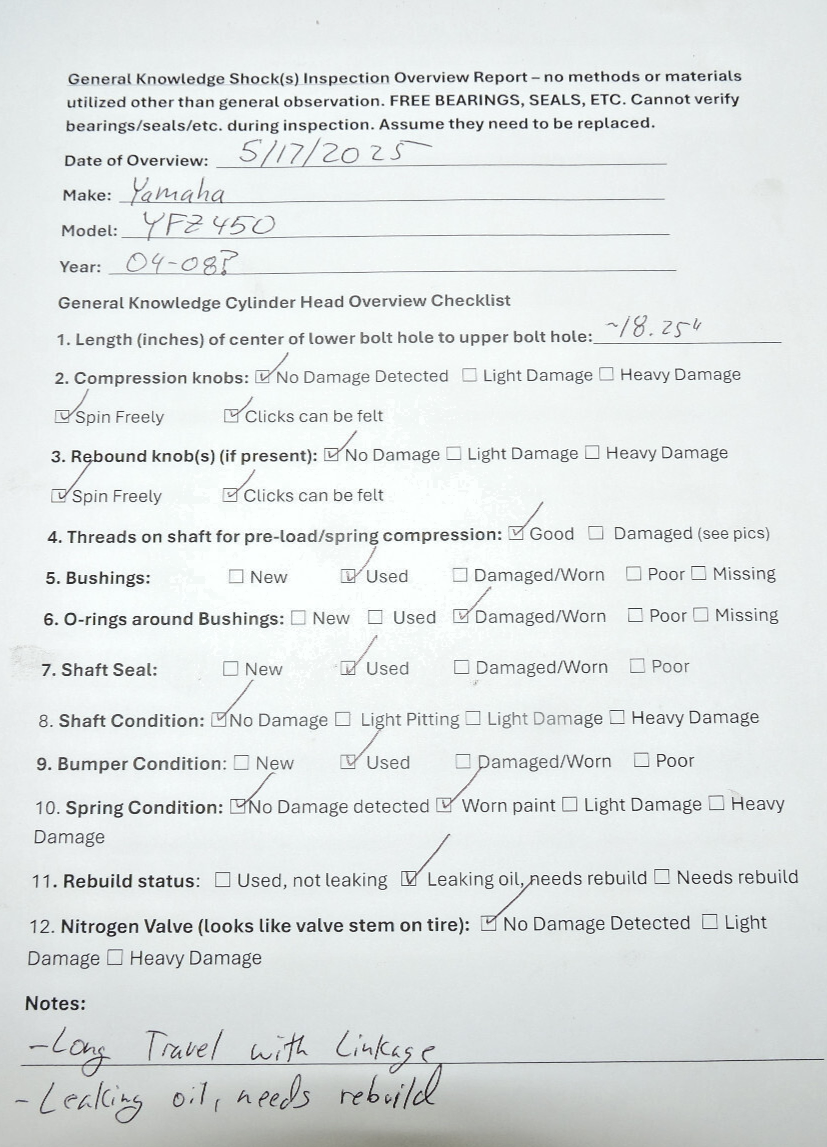 General Knowledge Shock(s) Inspection Overview Report – no methods or materials
utilized other than general observation. FREE BEARINGS, SEALS, ETC. Cannot verify
bearings/seals/etc. during inspection. Assume they need to be replaced.
Date of Overview: 5/17/2025
Make: Yamaha
Model: YFZ 450
Year: 04-08?
General Knowledge Cylinder Head Overview Checklist
1. Length (inches) of center of lower bolt hole to upper bolt hole: ~18.25"
2. Compression knobs: ☑ No Damage Detected ☐ Light Damage ☐ Heavy Damage
☑ Spin Freely ☑ Clicks can be felt
3. Rebound knob(s) (if present): ☑ No Damage ☐ Light Damage ☐ Heavy Damage
☑ Spin Freely ☑ Clicks can be felt
4. Threads on shaft for pre-load/spring compression: ☑ Good ☐ Damaged (see pics)
5. Bushings: ☐ New ☑ Used ☐ Damaged/Worn ☐ Poor ☐ Missing
6. O-rings around Bushings: ☐ New ☐ Used ☑ Damaged/Worn ☐ Poor ☐ Missing
7. Shaft Seal: ☐ New ☑ Used ☐ Damaged/Worn ☐ Poor
8. Shaft Condition: ☑ No Damage ☐ Light Pitting ☐ Light Damage ☐ Heavy Damage
9. Bumper Condition: ☐ New ☑ Used ☐ Damaged/Worn ☐ Poor
10. Spring Condition: ☑ No Damage detected ☑ Worn paint ☐ Light Damage ☐ Heavy
Damage
11. Rebuild status: ☐ Used, not leaking ☑ Leaking oil, needs rebuild ☐ Needs rebuild
12. Nitrogen Valve (looks like valve stem on tire): ☑ No Damage Detected ☐ Light
Damage ☐ Heavy Damage
Notes:
-Long Travel with Linkage
- Leaking oil, needs rebuild